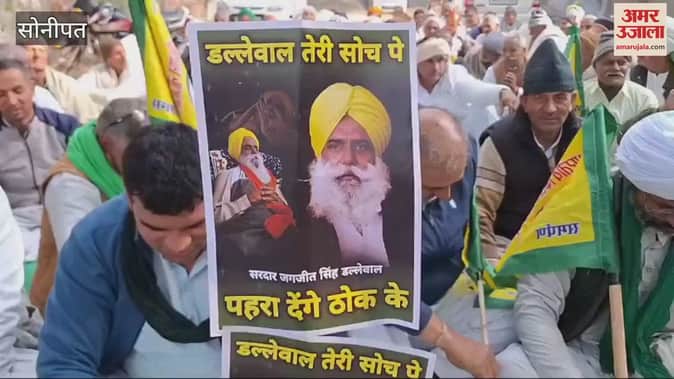 सोनीपत
अमर उजाला
amarujala.com
डल्लेवाल तेरी सोच पे
सरदार जगजीत सिंह डल्लेवाल
पहरा देंगे ठोक के
डल्लेवाल तेरी सोच पे
समर्पण